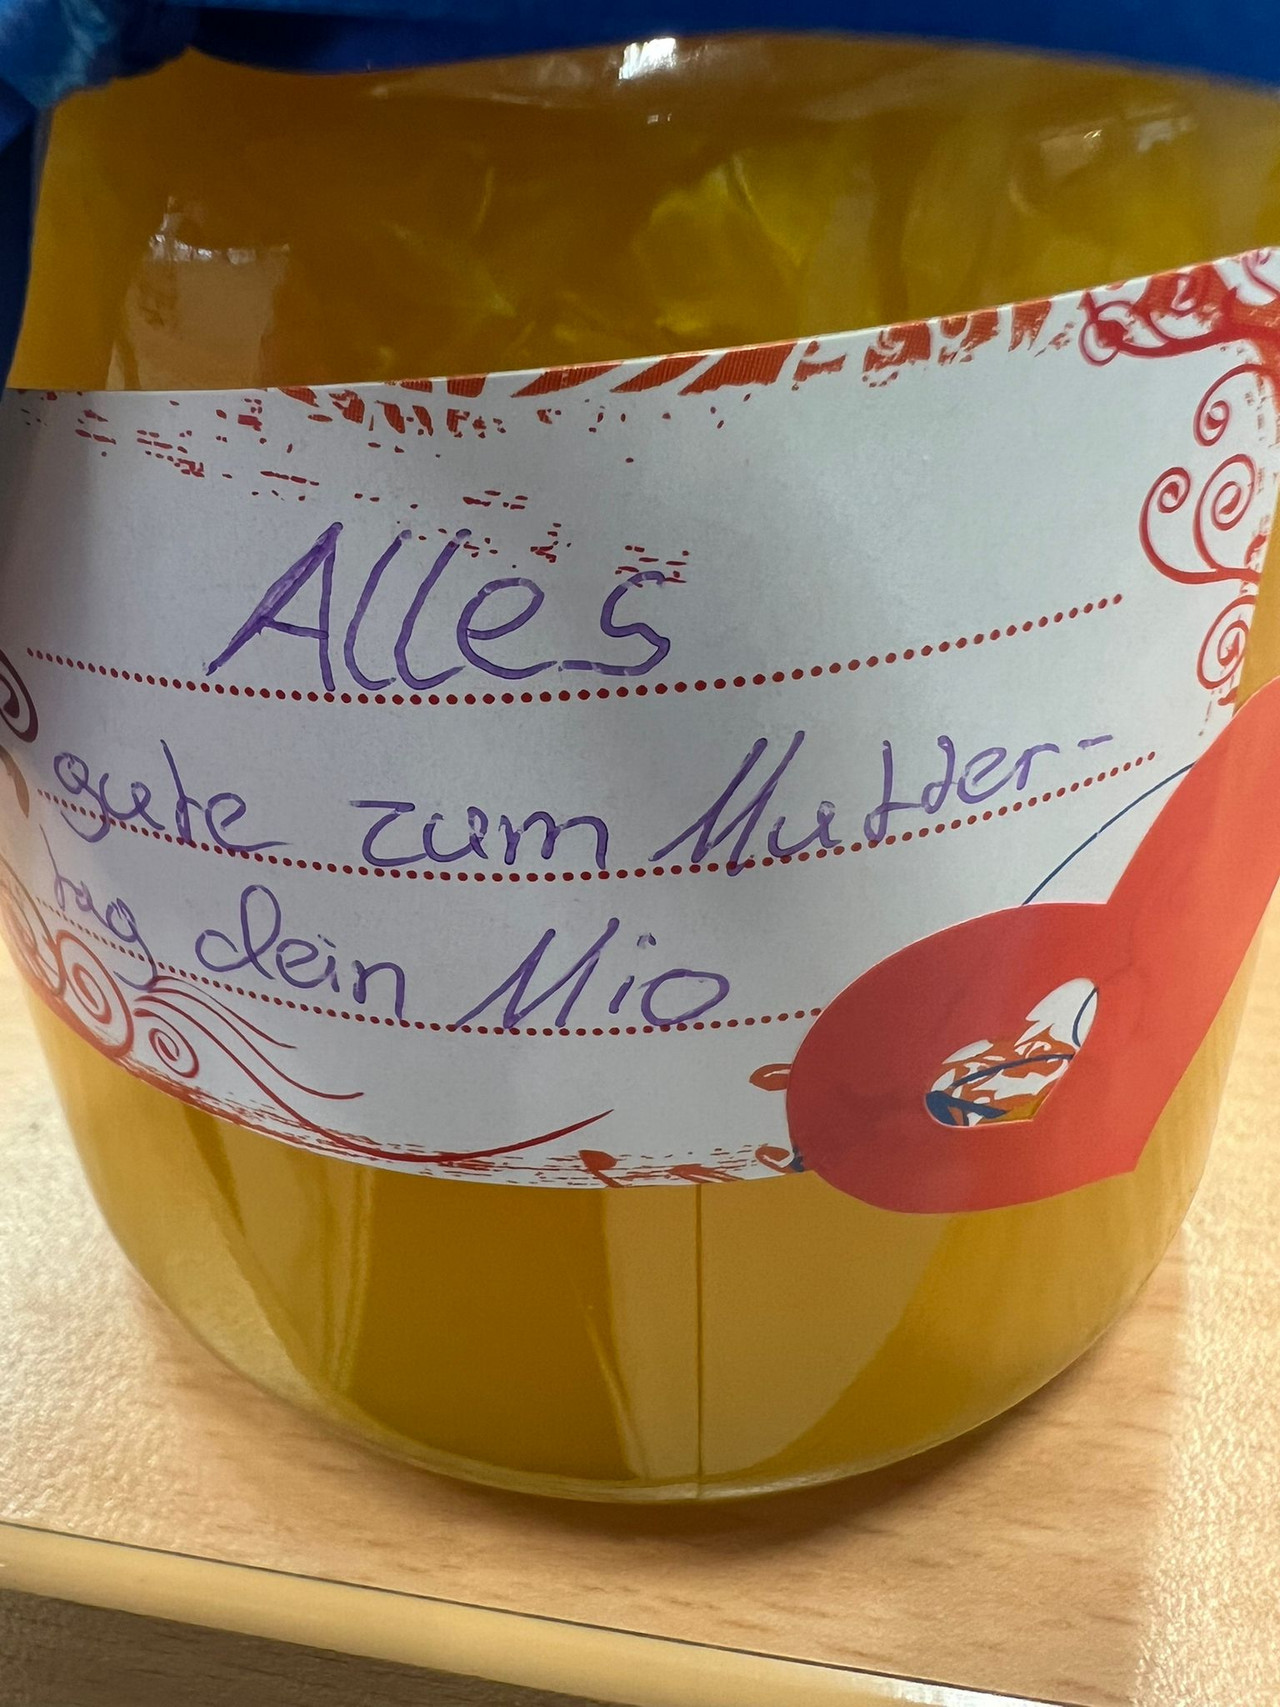 Alles
gute zum Mutter-
tag dein Mio